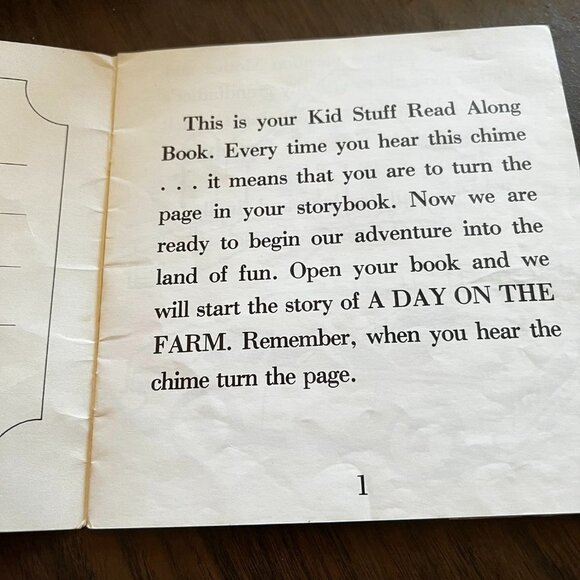 This is your Kid Stuff Read Along
Book. Every time you hear this chime
. . . it means that you are to turn the
page in your storybook. Now we are
ready to begin our adventure into the
land of fun. Open your book and we
will start the story of A DAY ON THE
FARM. Remember, when you hear the
chime turn the page.
1